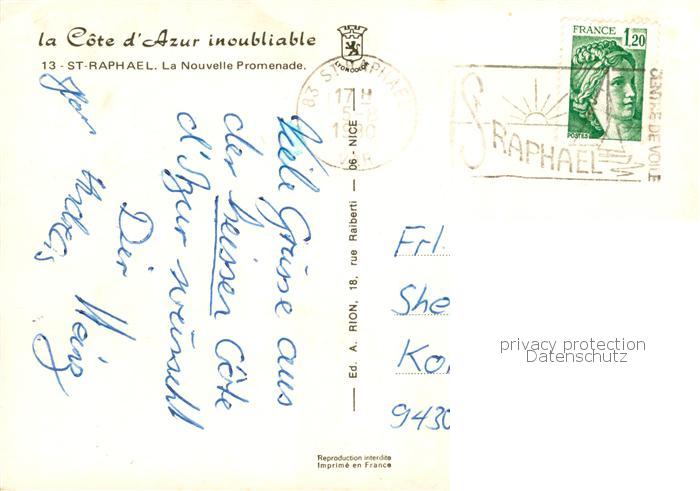 la Côte d'Azur inoubliable
13 - ST-RAPHAEL. La Nouvelle Promenade.
LYONCOLOR
83 ST RAPHAEL
17 H
VAR
ST RAPHAEL
CENTRE DE VOILE
FRANCE
1,20
POSTES
Viele Grüsse aus
der heissen Côte
d'Azur wünscht
Dir Heinz
Ed. A. RION, 18, rue Raiberti — 06 - NICE
Frl.
She
Ko
9430
privacy protection
Datenschutz
Reproduction interdite
Imprimé en France